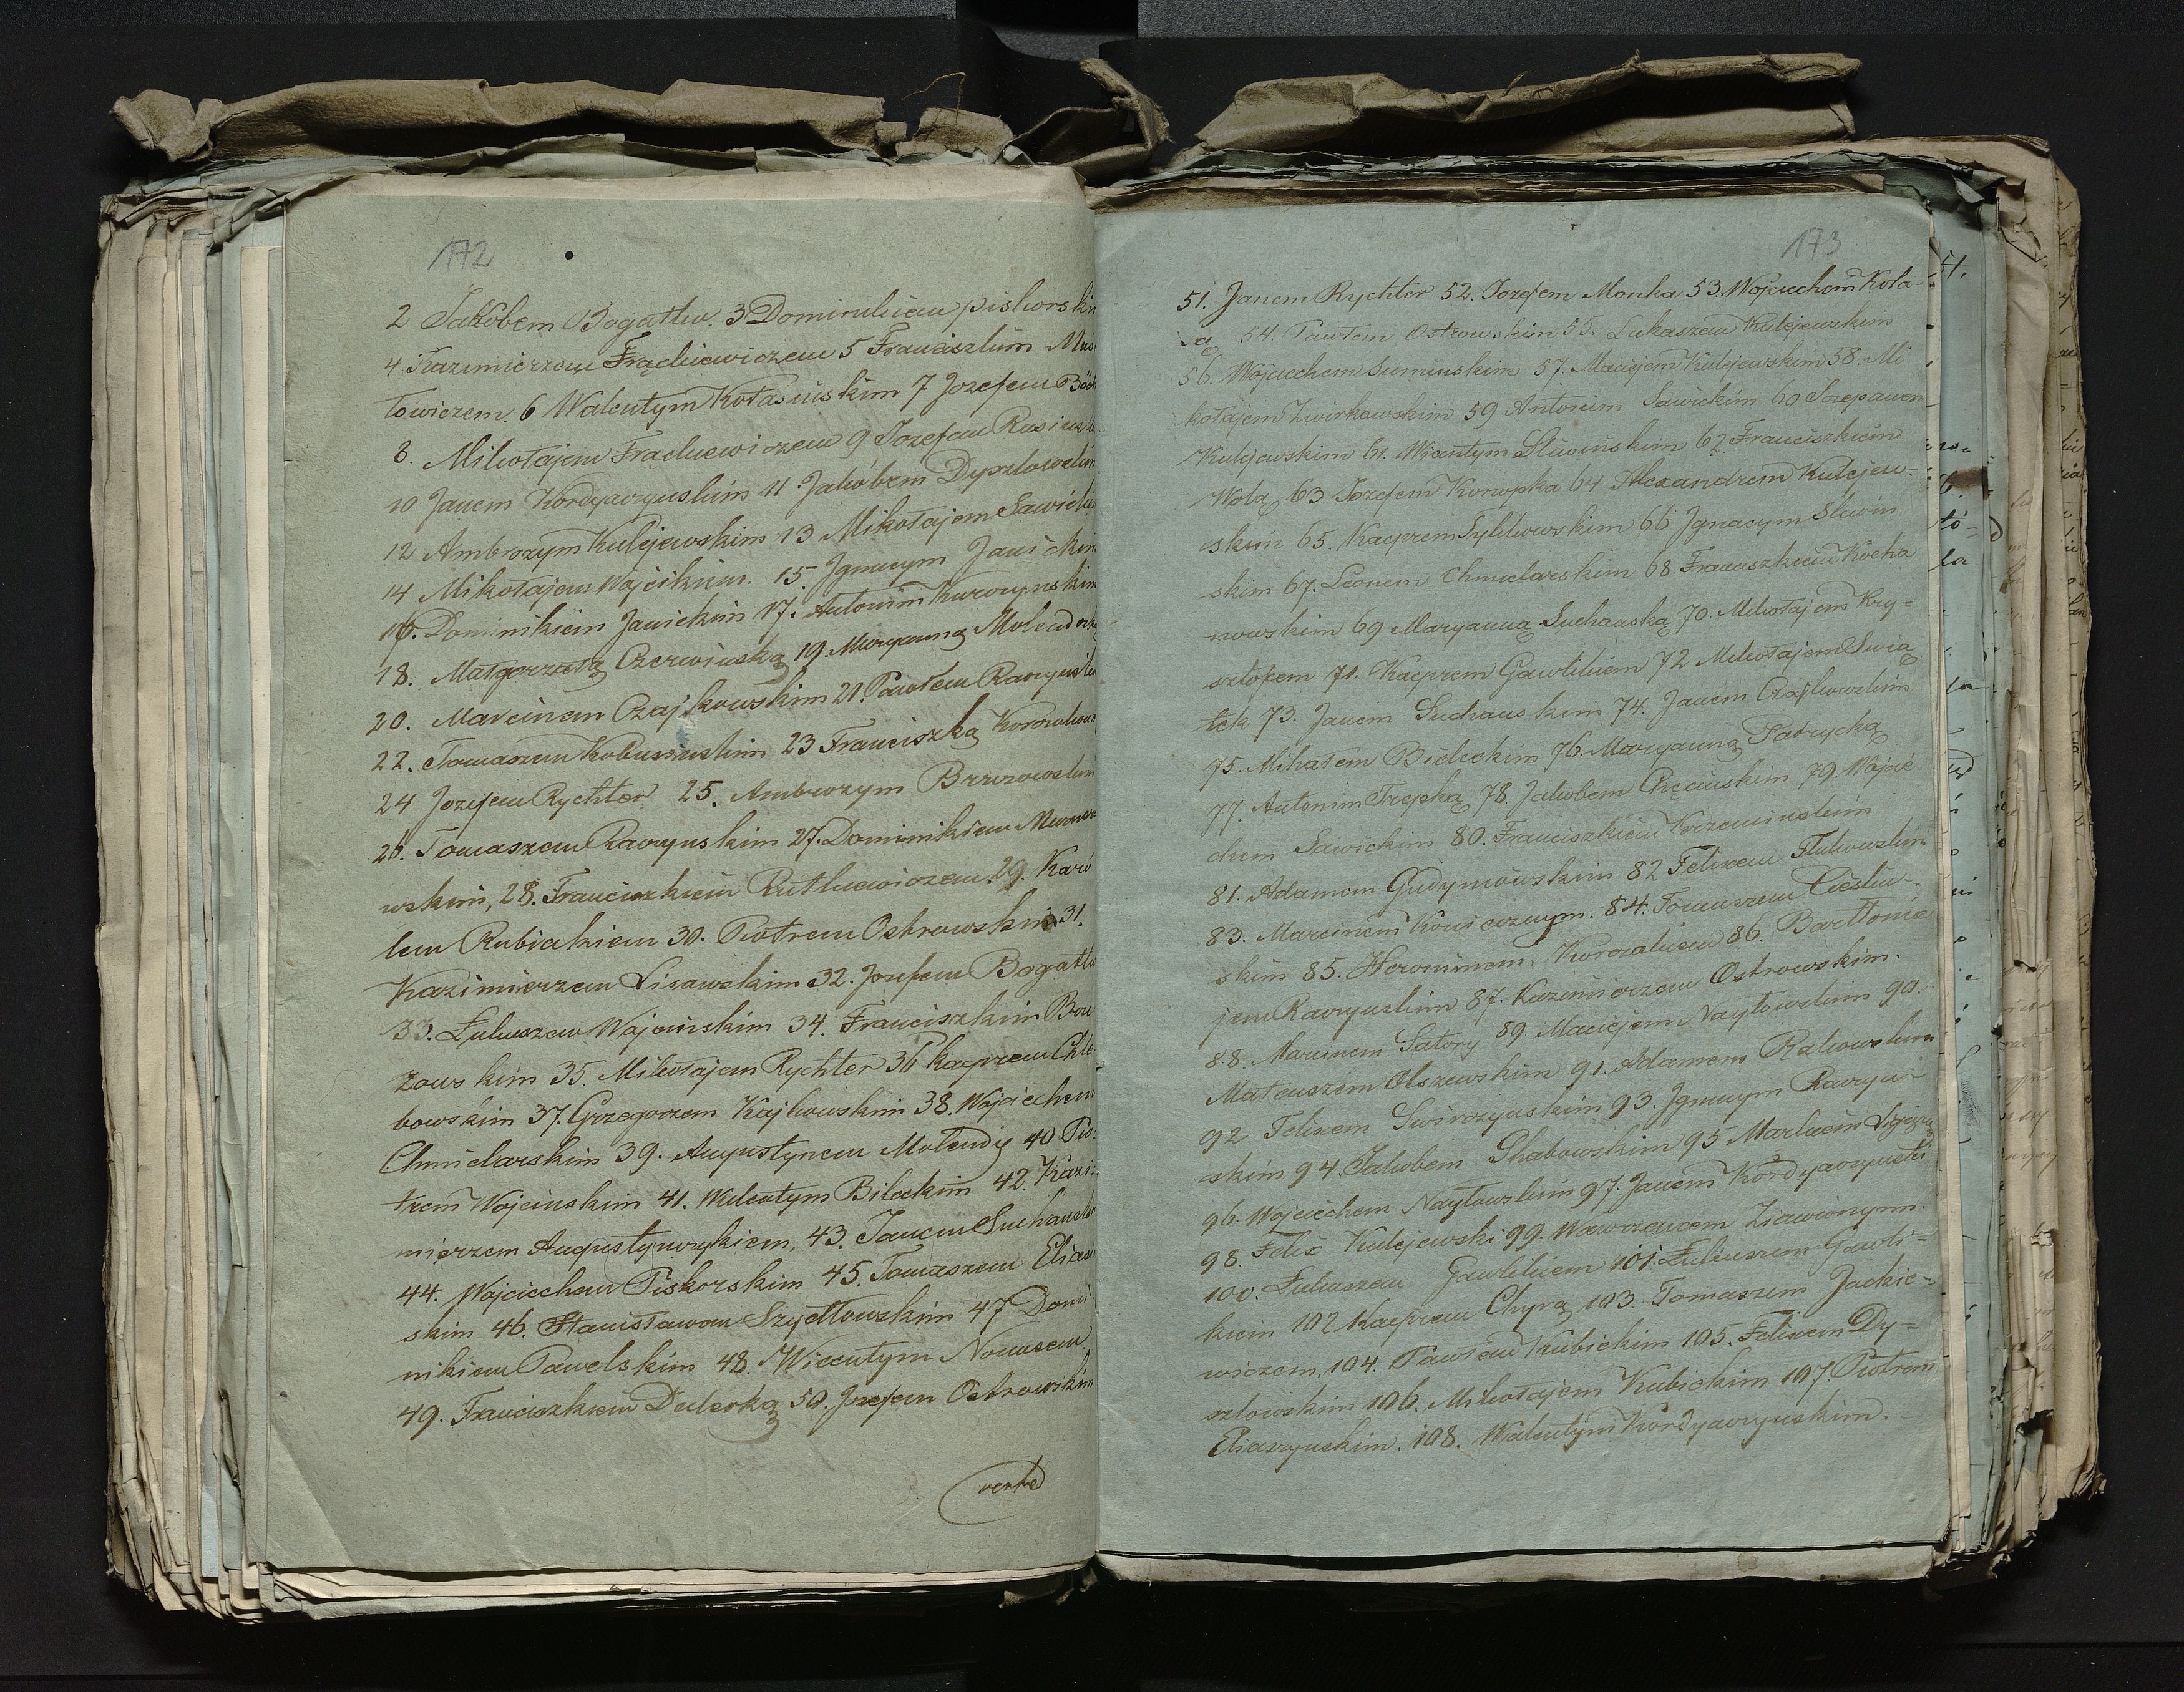 172
2 Jakobem Bogatko. 3 Dominikiem piskorskim
4 Kazimierzem Frąckiewiczem 5 Franciszkim
towiczem. 6 Walentym Kołasinskim 7 Jozefem
8. Mikołajem Frąckiewiczem 9 Jozefem
10 Janem Kordyaczynskim 11 Jakóbem Dyszlowskim
12 Ambrozym Kulejewskim 13 Mikołajem Sawickim
14 Mikołajem Wojcikiem. 15. Jgnacym Janickim
16. Dominikiem Janickim 17. Antonim
18. Małgorzatą Czerwinską 19. Maryanną
20. Marcinem Czajkowskim 21. Pawłem Raczynskim
22. Tomaszem 23 Franciszką
24 Jozefem Rychter 25. Ambrozym Brzozowskim
26. Tomaszem Raczynskim 27. Dominikiem
wskim, 28. Franciszkiem Rutkiewiczem 29. Karó
lem Rubiakiem 30. Piotrem Ostrowskim 31.
Kazimierzem Lisawskim 32. Jozefem Bogatko
33. Łukaszem Wojcinskim 34. Franciszkim Brzo
zowskim 35. Mikołajem Rychter 36 Kacprem Chle
bowskim 37. Grzegorzem Kajkowskim 38. Wojciechem
Chmielarskim 39. Augustynem Molendy 40 Pio
trem Wojcinskim 41. Walentym Bileckim 42. Kazi
mierzem Augustynczykiem, 43. Janem Suchanskim
44. Wojciechem Piskorskim 45. Tomaszem
skim 46. Stanisławem Szydłowskim 47 Domi
nikiem Pawelskim 48. Wicentym Nowasem
49. Franciszkiem Dederką 50. Jozefem Ostrowskim
verte
173
51. Janem Rychter 52. Jozefem Monka 53. Wojciechem Kola
54. Pawłem Ostrowskim 55. Lukaszem Kulejewskim
56. Wojciechem Suminskim 57. Maciejem Kulejewskim 58. Mi
kołajem Zwirkowskim 59 Antonim Sawickim 60 Szczepanem
Kulejewskim 61. Wicentym Sliwinskim 62 Franciszkiem
Wolą 63 Jozefem Konopka 64 Alexandrem Kulejew-
skim 65. Kacprem 66 Jgnacym Sliwin
skim 67. Leonem Chmielarskim 68. Franciszkiem Kocha
nowskim 69 Maryanną Suchanską 70. Mikołajem Kry-
sztofem 71. Kacprem Gawlikiem 72 Mikołajem Swią
tek 73. Janem Suchanskim 74. Janem Czajkowskim
75. Michałem Bieleckim 76. Maryanną Patrycką
77. Antonim Trepką 78. Jakobem Chęcinskim 79. Wojcie
chem Sawickim 80. Franciszkiem Krzeminskim
81. Adamem Gudymowskim 82 Felixem
83. Marcinem Koniecznym. 84. Tomaszem Cieslin-
skim 85. Heronimem. 86. Bartłomie
jem Raczynskim 87. Kazimierzem Ostrowskim.
88. Marcinem Satory 89. Maciejem Naytowskim 90.
Mateuszem Olszewskim 91. Adamem Rakowskim
92 Felixem Swirczynskim 93. Jgnacym Raczyn-
skim 94. Jakobem Grabowskim 95 Markiem
96. Wojciechem Naytowskim 97. Janem Kordyaczynski
98. Felix Kulejewski 99. Wawrzencem Ziawionym.
100. Łukaszem Gawlikiem 101. Łukaszem Gawli-
kiem 102 Kacprem Chyrą 103. Tomaszem Jackie-
wiczem, 104. Pawłem Kubickim 105. Felixem Dy-
szlowskim 106. Mikołajem Kubickim 107. Piotrem
Eliaszynskim. 108. Walentym Kordyaczynskim.